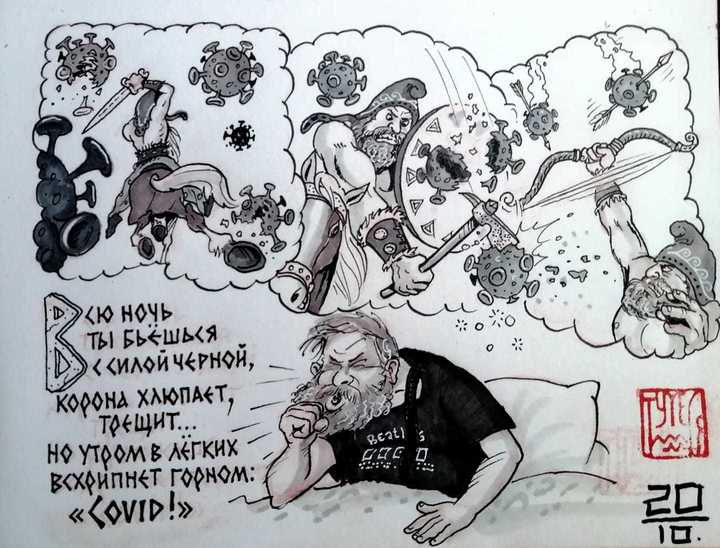 Всю ночь
ты бьёшься
с силой черной,
корона хлюпает,
трещит...
но утром в лёгких
всхрипнет горном:
«Covid!»
Beatles
20
10.